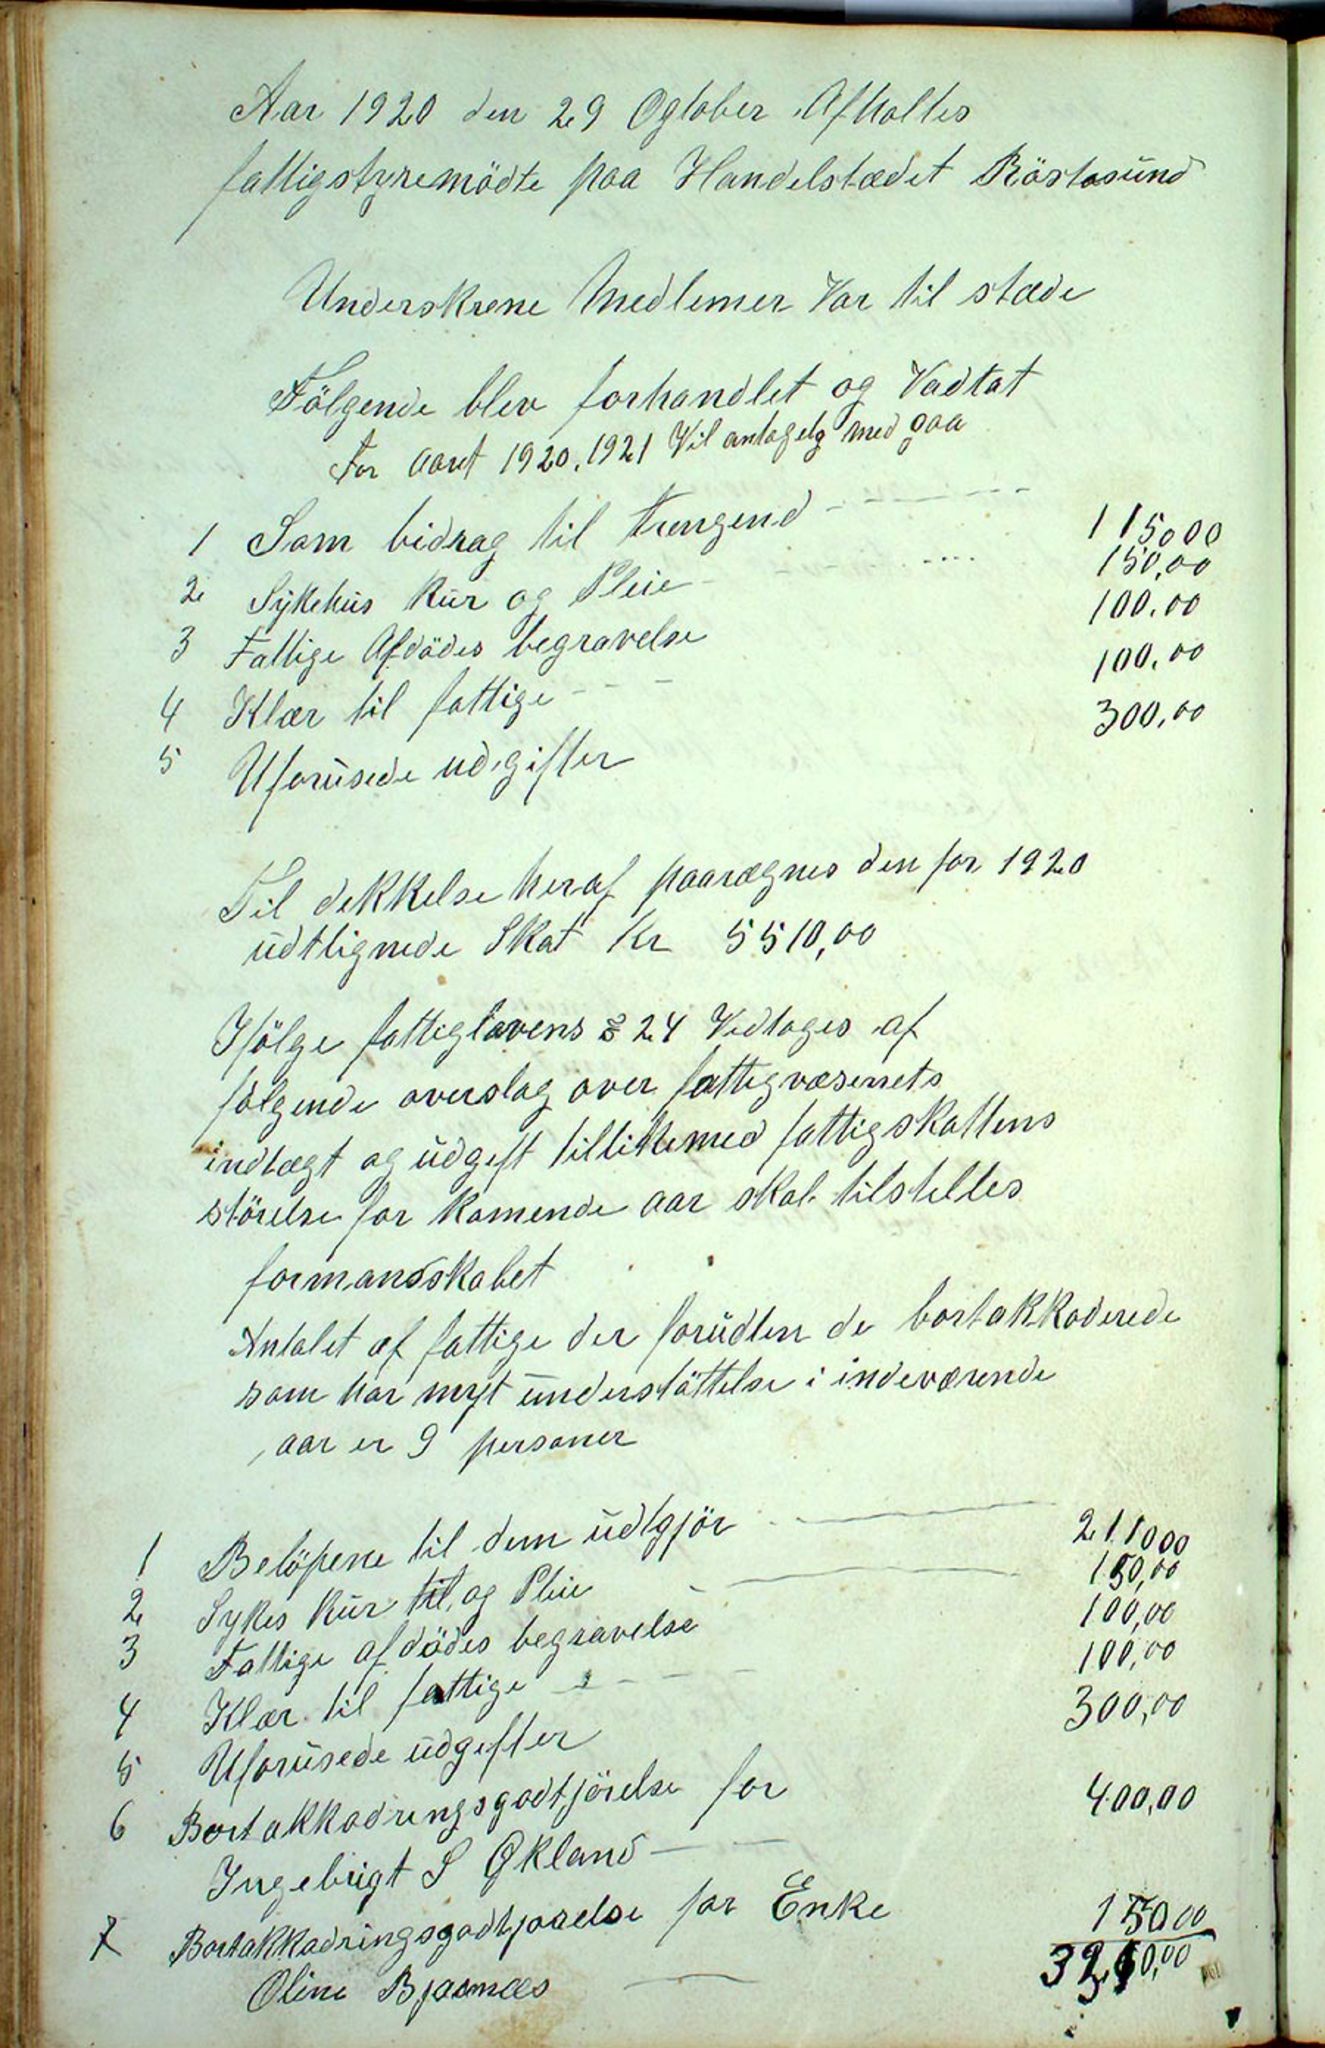 Aar 1920 den 29 Ogtober Afholtes
fattigstyremödte paa Handelstædet Röstasund
Underskrene Medlemer Var til stæde
Fölgende blev forhandlet og Vadtat
For Aaret 1920.1921 Vil antagelg med gaa
1 Som bidrag til trengend 115000
2 Sykehus Kur og Pleie 150,00
3 Fattige Afdödes begravelse 100.00
4 Klær til fattige 100.00
5 Uforusede udgifter 300,00
Til dekkelse heraf paarægnes den for 1920
udtlignede Skat Kr 5510,00
Ifölge fattiglovens § 24 Vedtoges af
folgende overslag over fattigvæsenets
indtægt og udgeft tillikemed fattigskattens
störelse for Komende aar skal tilstilles
formandskabet
Antalet af fattige der forudten de bortakkoderede
som har nyt understöttelse i indeværende
aar er 9 personer
1 Belöpene til dem udtgjör 211000
2 Sykes Kur til og Pleie 150,00
3 Fattige afdödes begravelse 100,00
4 Klær til fattige 100,00
5 Uforusede udgefter 300,00
6 Bortakkodringsgodtjörelse for
Ingebrigt S Økland 400,00
7 Bortakkodringsgodtjorelse for Enke
Oline Bjaamæs 15000